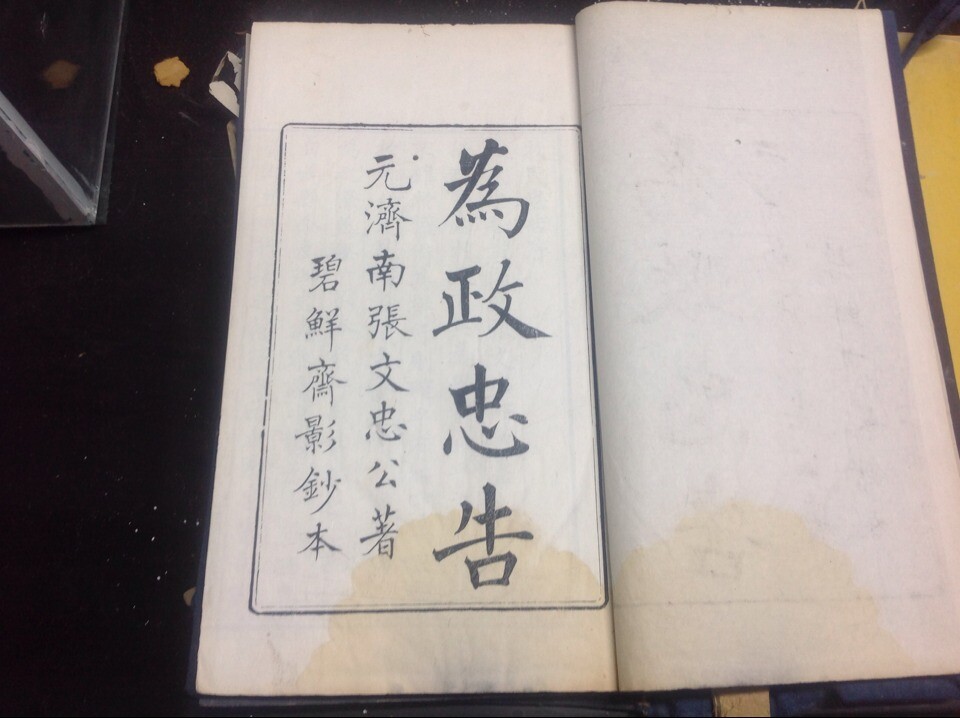 為政忠告
元濟南張文忠公著
碧鮮齋影鈔本